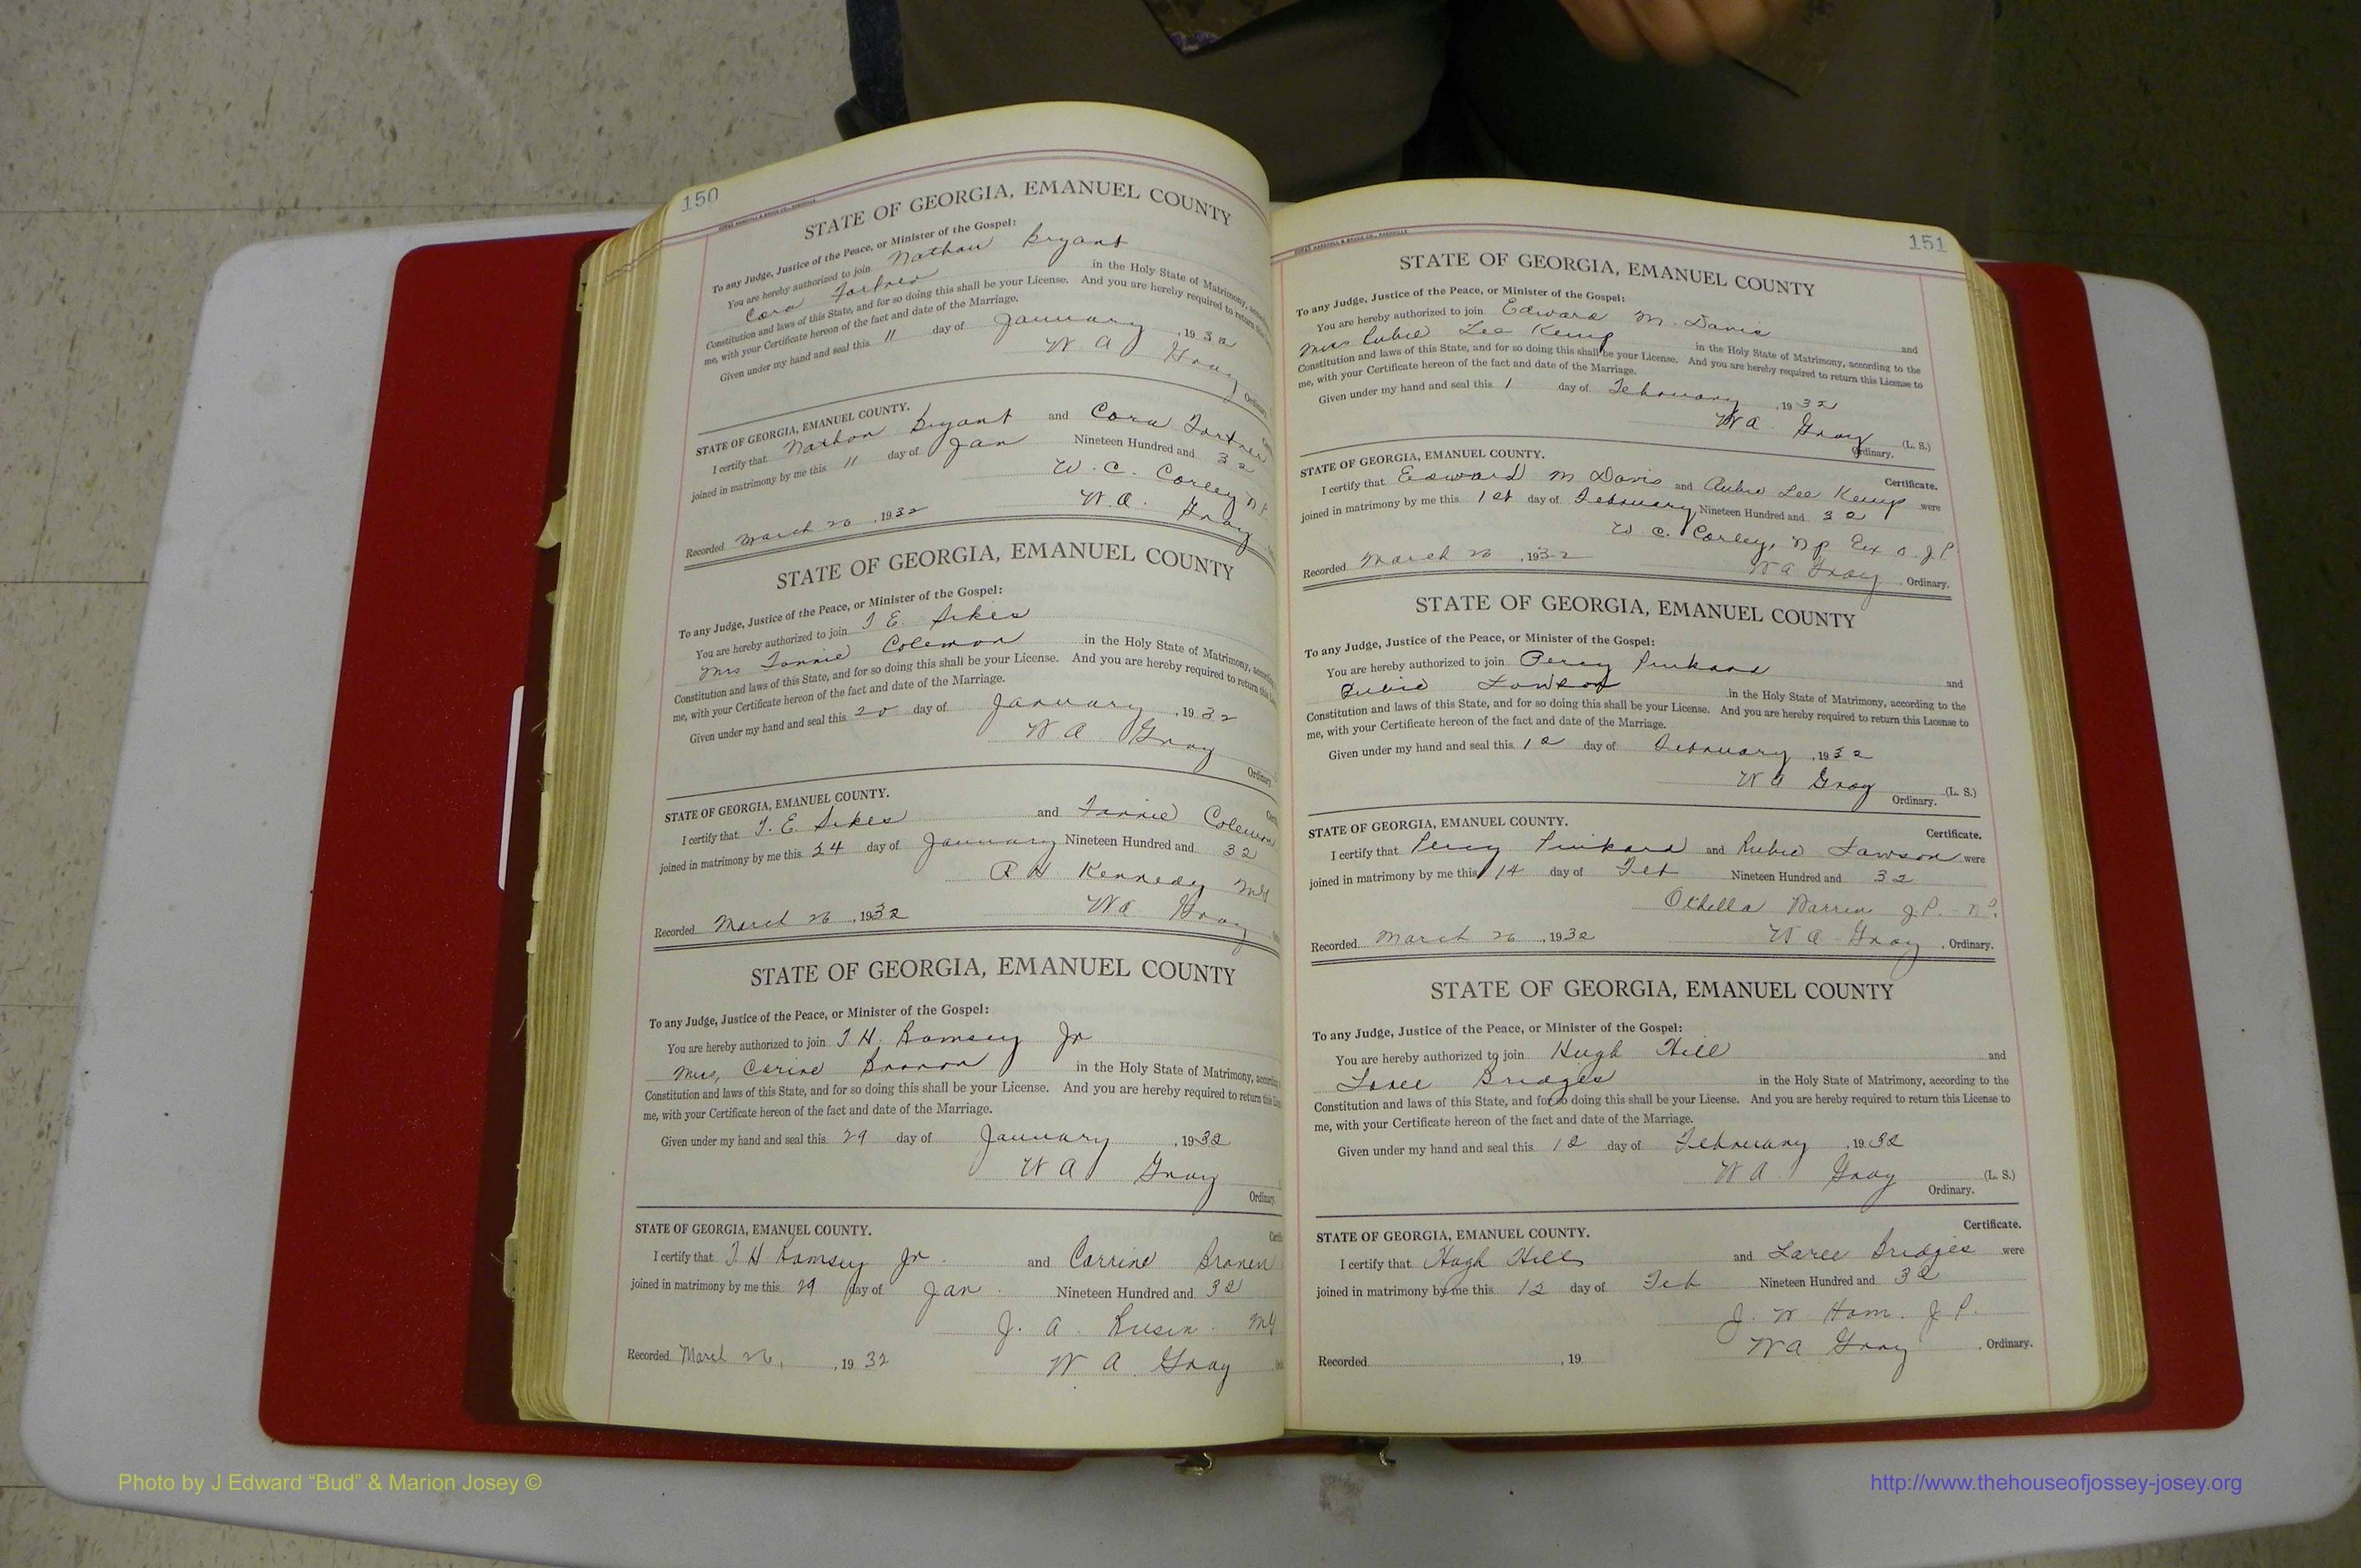 150
STATE OF GEORGIA, EMANUEL COUNTY
To any Judge, Justice of the Peace, or Minister of the Gospel:
You are hereby authorized to join Nathan Bryant
Cora Fortner in the Holy State of Matrimony,
Constitution and laws of this State, and for so doing this shall be your License. And you are hereby required to return
me, with your Certificate hereon of the fact and date of the Marriage.
Given under my hand and seal this 11 day of January, 1932
W A Gray
Ordinary
STATE OF GEORGIA, EMANUEL COUNTY.
I certify that Nathan Bryant and Cora Fortner
joined in matrimony by me this 11 day of Jan Nineteen Hundred and 32
W. C. Corley N P
Recorded March 26, 1932 W. A. Gray
STATE OF GEORGIA, EMANUEL COUNTY
To any Judge, Justice of the Peace, or Minister of the Gospel:
You are hereby authorized to join T E. Sikes
Mrs Fannie Coleman in the Holy State of Matrimony,
Constitution and laws of this State, and for so doing this shall be your License. And you are hereby required to return this
me, with your Certificate hereon of the fact and date of the Marriage.
Given under my hand and seal this 20 day of January, 1932
W A Gray
Ordinary
STATE OF GEORGIA, EMANUEL COUNTY.
I certify that T. E. Sikes and Fannie Coleman
joined in matrimony by me this 24 day of January Nineteen Hundred and 32
R H Kennedy MG
Recorded March 26, 1932 W A Gray
STATE OF GEORGIA, EMANUEL COUNTY
To any Judge, Justice of the Peace, or Minister of the Gospel:
You are hereby authorized to join J H. Ramsey Jr
Mrs, Corine in the Holy State of Matrimony,
Constitution and laws of this State, and for so doing this shall be your License. And you are hereby required to return this
me, with your Certificate hereon of the fact and date of the Marriage.
Given under my hand and seal this 29 day of January, 1932
W A Gray
Ordinary
STATE OF GEORGIA, EMANUEL COUNTY.
I certify that J H Ramsey Jr. and Corrine
joined in matrimony by me this 29 day of Jan. Nineteen Hundred and 32
J. A. MG
Recorded March 26, , 1932 W A Gray
151
STATE OF GEORGIA, EMANUEL COUNTY
To any Judge, Justice of the Peace, or Minister of the Gospel:
You are hereby authorized to join Edward M. Davis and
Miss Rubie Lee Kemp in the Holy State of Matrimony, according to the
Constitution and laws of this State, and for so doing this shall be your License. And you are hereby required to return this License to
me, with your Certificate hereon of the fact and date of the Marriage.
Given under my hand and seal this 1 day of February, 1932
W A Gray (L. S.)
Ordinary.
STATE OF GEORGIA, EMANUEL COUNTY. Certificate.
I certify that Edward M Davis and Rubie Lee Kemp were
joined in matrimony by me this 1st day of February Nineteen Hundred and 32
W C. Corley, N P Ex O. J P.
Recorded March 26, 1932 W A Gray, Ordinary.
STATE OF GEORGIA, EMANUEL COUNTY
To any Judge, Justice of the Peace, or Minister of the Gospel:
You are hereby authorized to join Percy Pinkard and
Rubie Lawson in the Holy State of Matrimony, according to the
Constitution and laws of this State, and for so doing this shall be your License. And you are hereby required to return this License to
me, with your Certificate hereon of the fact and date of the Marriage.
Given under my hand and seal this 12 day of February, 1932
W A Gray (L. S.)
Ordinary.
STATE OF GEORGIA, EMANUEL COUNTY. Certificate.
I certify that Percy Pinkard and Rubie Lawson were
joined in matrimony by me this 14 day of Feb Nineteen Hundred and 32
Othella J. P.
Recorded March 26, 1932 W A Gray, Ordinary.
STATE OF GEORGIA, EMANUEL COUNTY
To any Judge, Justice of the Peace, or Minister of the Gospel:
You are hereby authorized to join Hugh Hill and
Loree Bridges in the Holy State of Matrimony, according to the
Constitution and laws of this State, and for so doing this shall be your License. And you are hereby required to return this License to
me, with your Certificate hereon of the fact and date of the Marriage.
Given under my hand and seal this 12 day of February, 1932
W A Gray (L. S.)
Ordinary.
STATE OF GEORGIA, EMANUEL COUNTY. Certificate.
I certify that Hugh Hill and Loree Bridges were
joined in matrimony by me this 12 day of Feb Nineteen Hundred and 32
J. W Ham. J P.
Recorded , 19 W A Gray, Ordinary.
Photo by J Edward “Bud” & Marion Josey ©
http://www.thehouseofjossey-josey.org